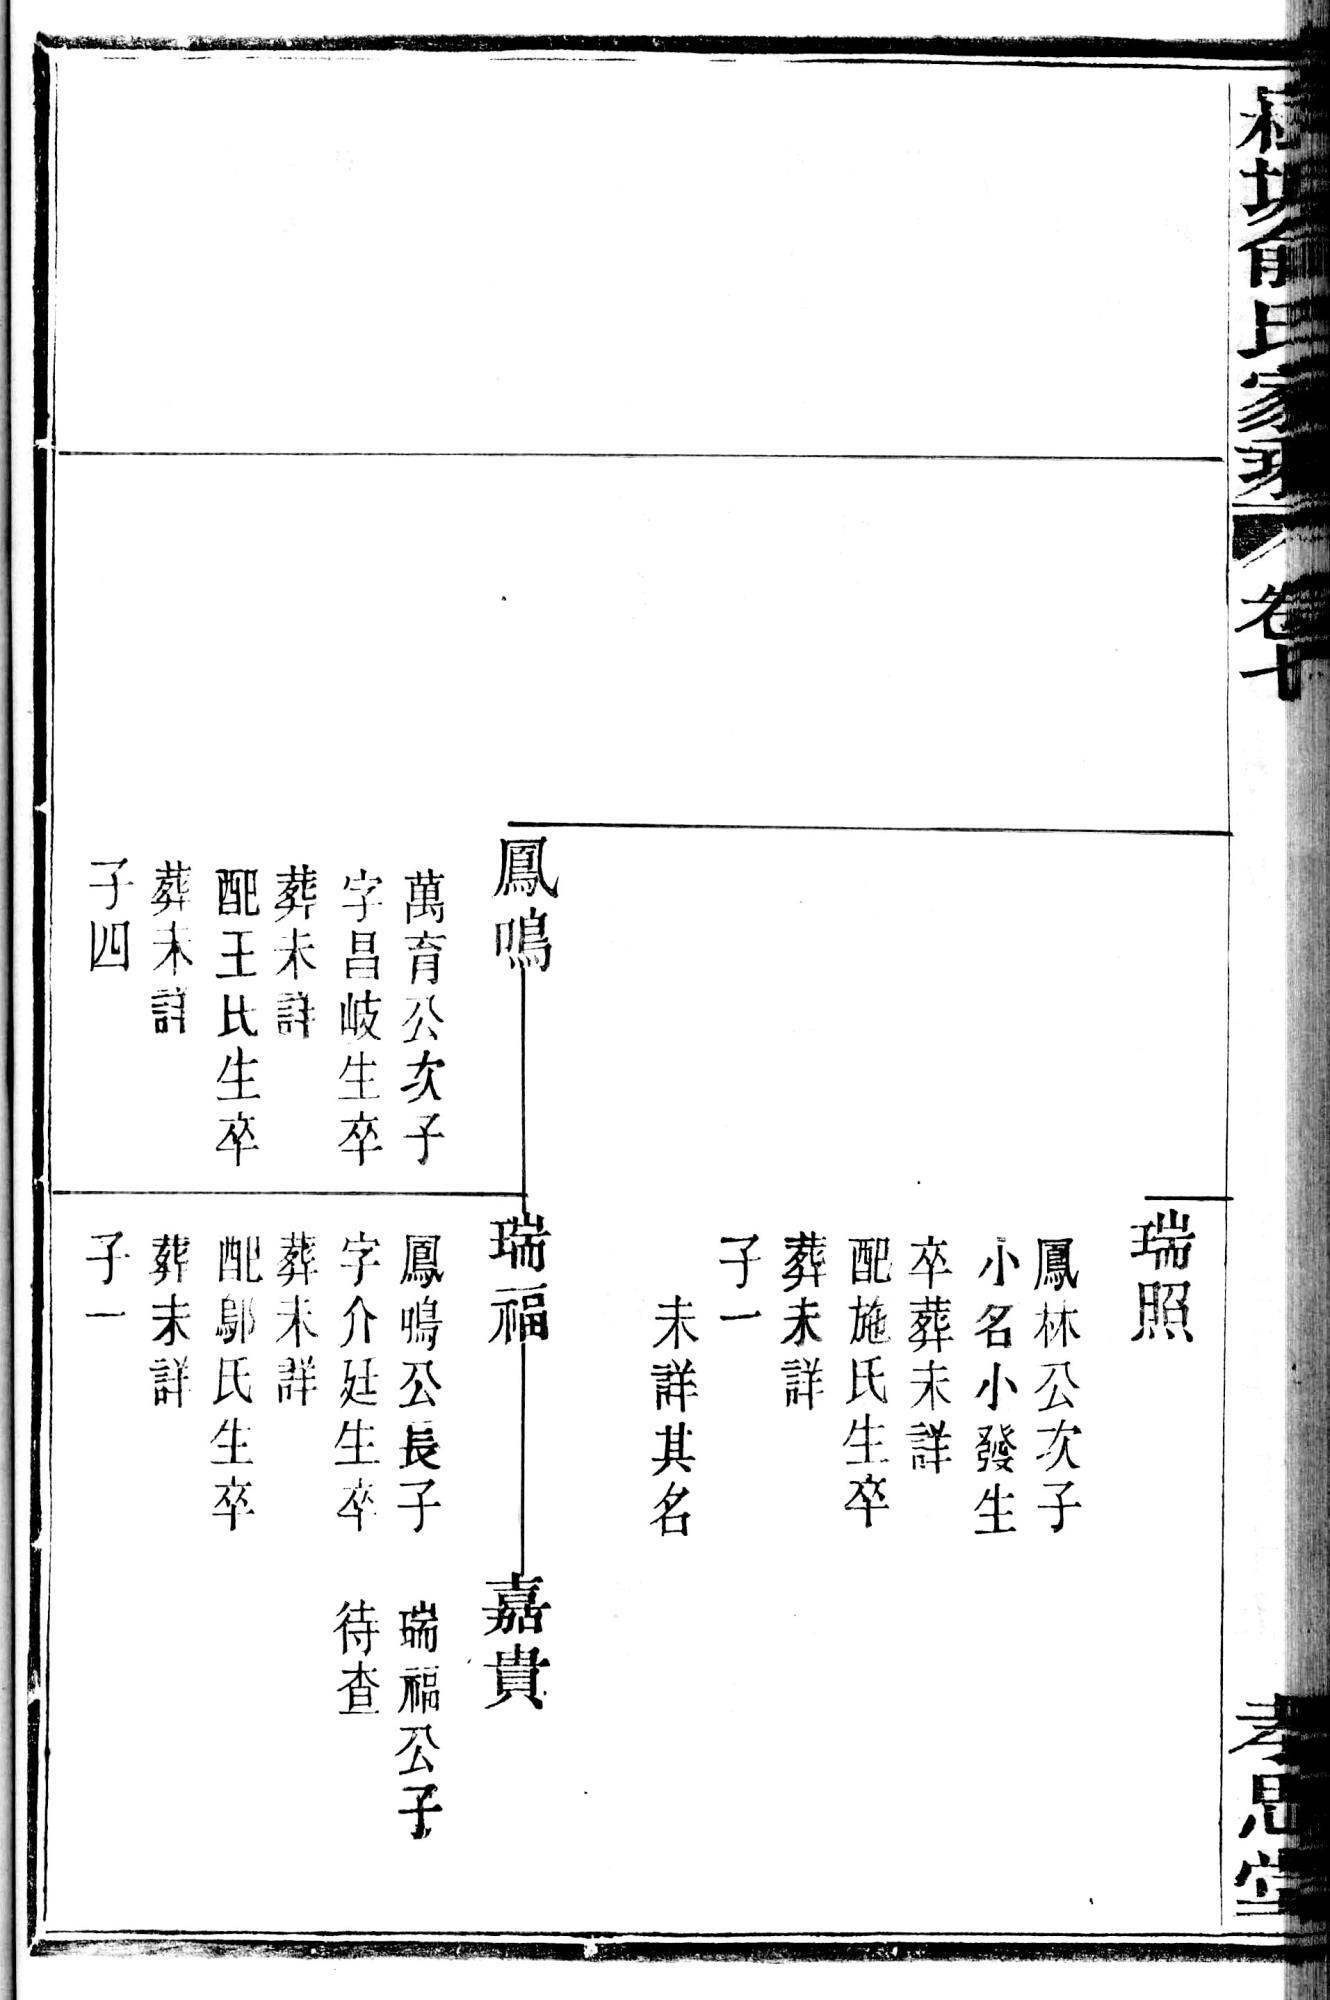 俞氏家乘
卷十
孝思堂
瑞照
鳳林公次子
小名小發生
卒葬未詳
配施氏生卒
葬未詳
子一
未詳其名
鳳鳴
萬育公次子
字昌岐生卒
葬未詳
配王氏生卒
葬未詳
子四
瑞福
鳳鳴公長子
字介廷生卒
葬未詳
配鄔氏生卒
葬未詳
子一
嘉貴
瑞福公子
待查